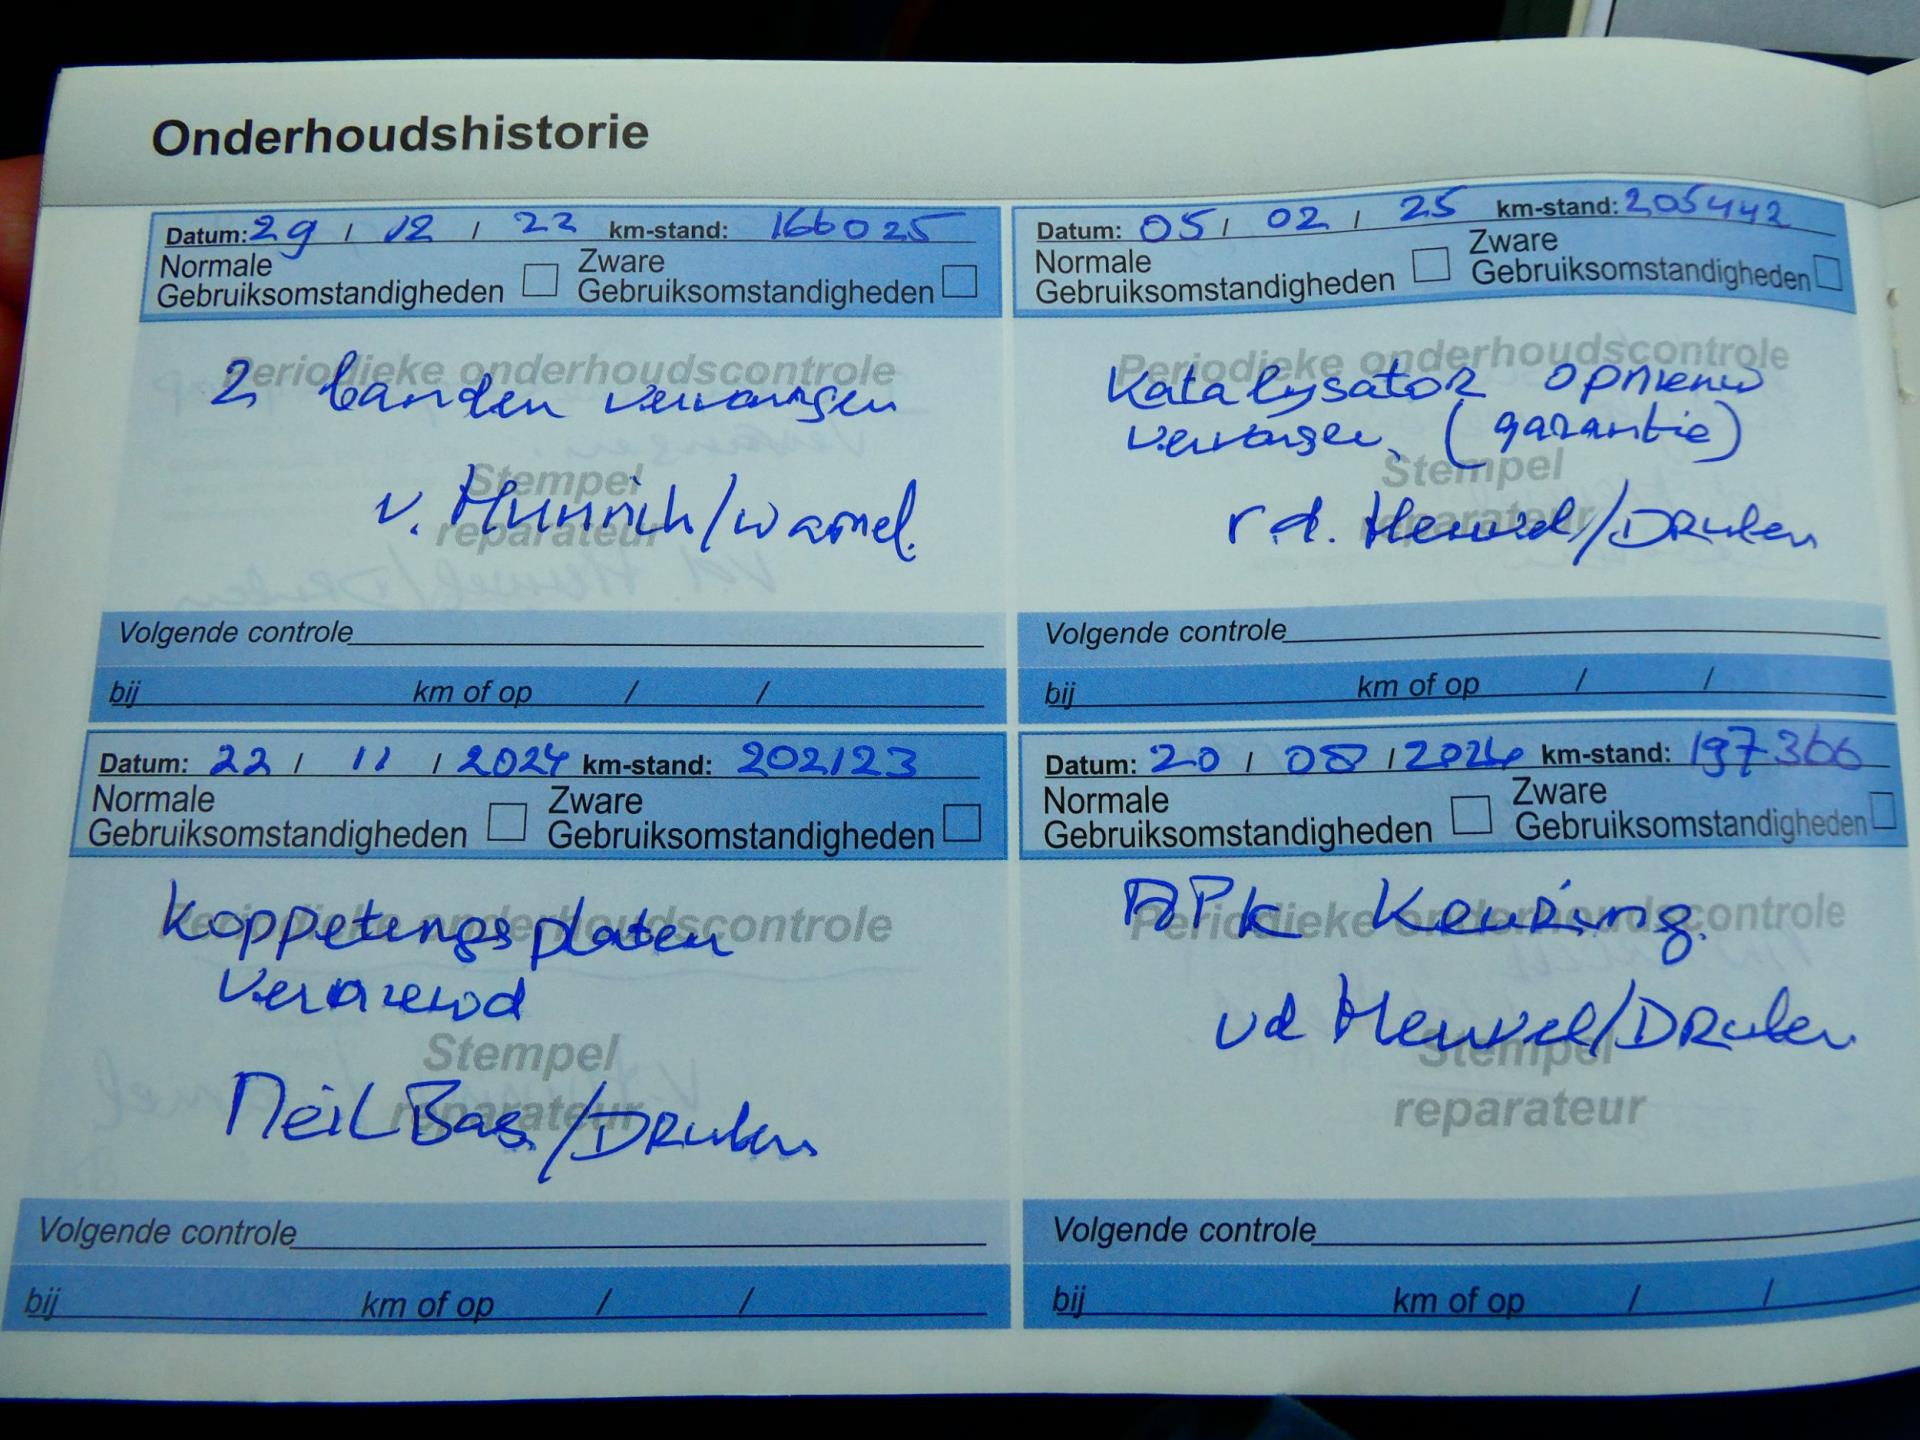 Onderhoudshistorie
Datum: 29 / 12 / 22 km-stand: 166025
Normale Gebruiksomstandigheden Zware Gebruiksomstandigheden
Periodieke onderhoudscontrole
2 banden vervangen
Stempel
reparateur
v. /wamel.
Volgende controle
bij km of op / /
Datum: 05 / 02 / 25 km-stand: 205442
Normale Gebruiksomstandigheden Zware Gebruiksomstandigheden
Periodieke onderhoudscontrole
Katalysator opnieuw
vervangen. (garantie)
Stempel
reparateur
Heuvel/Druten
Volgende controle
bij km of op / /
Datum: 22 / 11 / 2024 km-stand: 202123
Normale Gebruiksomstandigheden Zware Gebruiksomstandigheden
Periodieke onderhoudscontrole
koppelingsplaten
vernieuwd
Stempel
reparateur
Neil Bas/Druten
Volgende controle
bij km of op / /
Datum: 20 / 08 / 2024 km-stand: 197366
Normale Gebruiksomstandigheden Zware Gebruiksomstandigheden
Periodieke onderhoudscontrole
APK Keuring.
vd Heuvel/Druten
Stempel
reparateur
Volgende controle
bij km of op / /